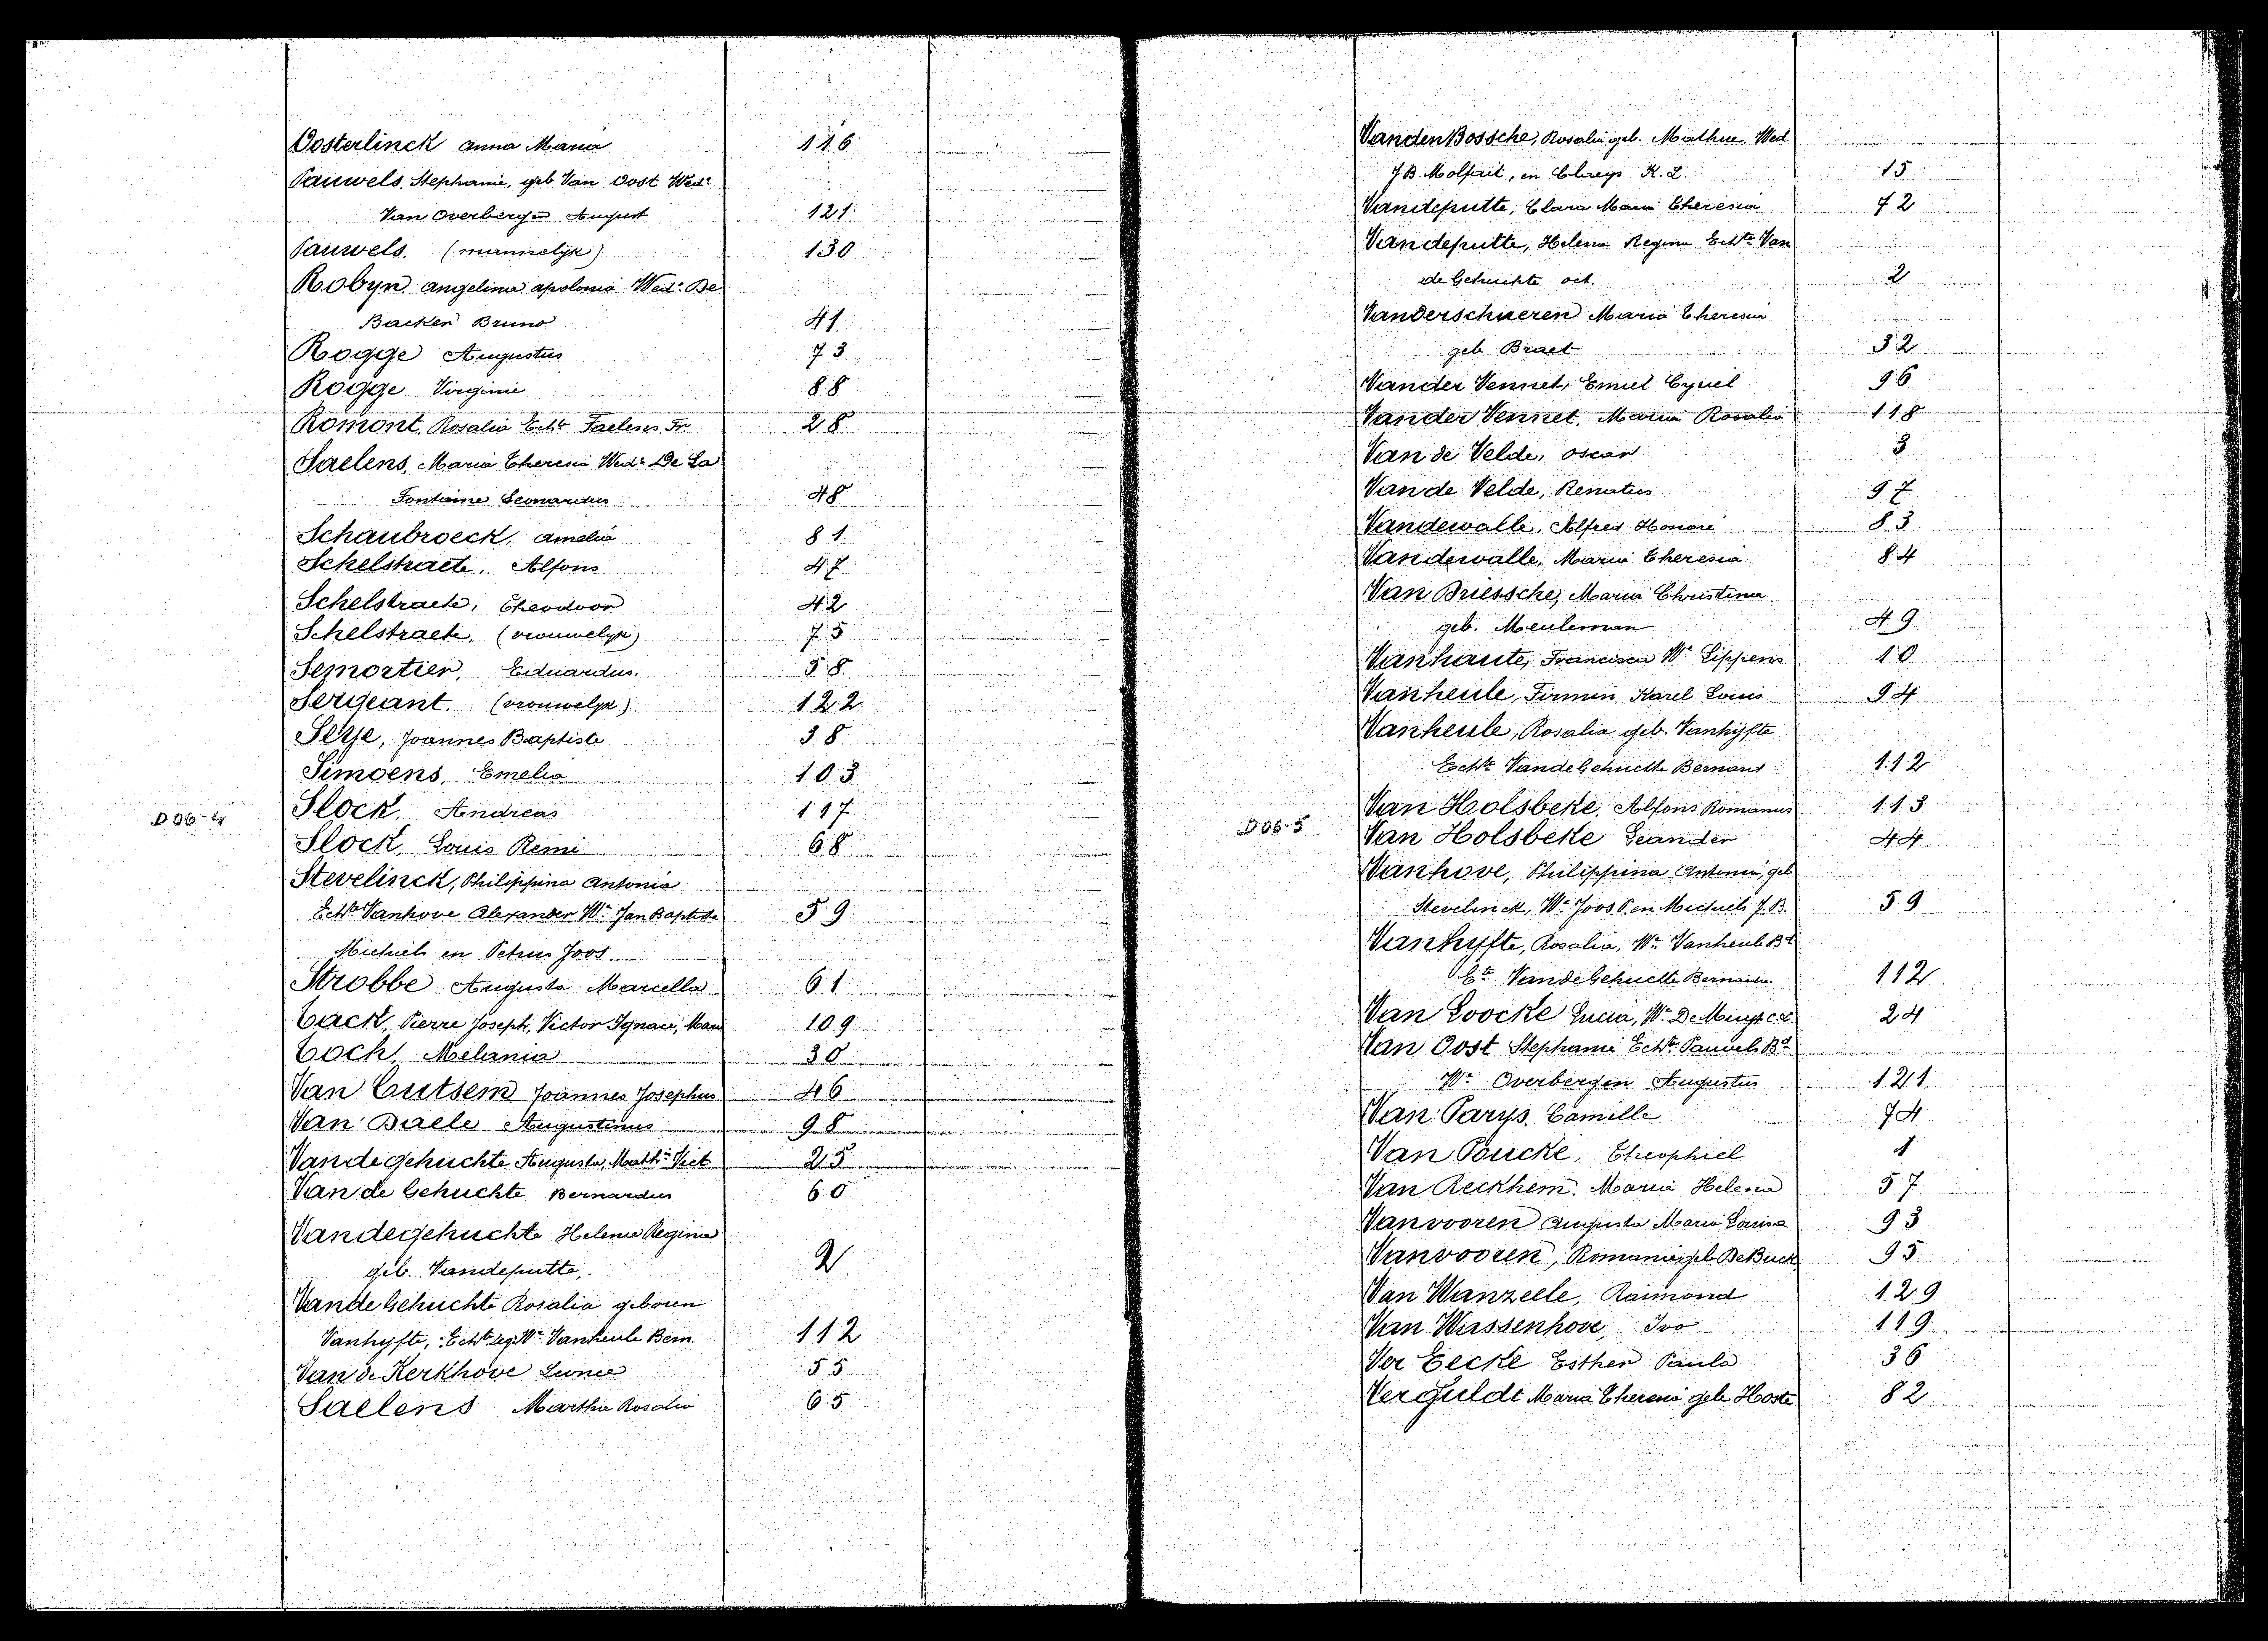 Oosterlinck anna Maria 116
Pauwels, Stephanie, geb Van Oost Wed.e
Van Overbergen August 121
Pauwels. (mannelijk) 130
Robyn. angelina apolonia Wed.e De
Backer Bruno 41
Rogge Augustus 73
Rogge Virginie 88
Romont, Rosalia Echte Faelens Fr. 28
Saelens, Maria Theresia Wed.e De La
Fontaine Leonardus 48
Schaubroeck, amelia 81
Schelstraete, Alfons 47
Schelstraete, Theodoor 42
Schelstraete, (vrouwelijk) 75
Semortier, Eduardus. 58
Sergeant. (vrouwelijk) 122
Serje, Joannes Baptiste 38
Simoens, Emelia 103
D06-4 Slock, Andreas 117
Slock, Louis Remi 68
Stevelinck, Philippina Antonia
Echte Vanhove Alexander We Jan Baptiste 59
Michiels en Petrus Joos
Strobbe Augusta Marcella 61
Tack, Pierre Joseph, Victor Ignace, Marie 109
Toch, Melania 30
Van Cutsem Joannes Josephus 46
Van Daele Augustinus 98
Vandegehuchte Augusta, Math.a Vict 25
Van de Gehuchte Bernardus 60
Vandegehuchte Helena Regina
geb. Vandeputte, 2
Vande Gehuchte Rosalia geboren
Vanhyfte, Echte leg. We Vanheule Bern. 112
Van de Kerkhove Leonce 55
Saelens Martha Rosalia 65
Vanden Bossche, Rosalia geb. Mathue Wed.
J B. Molfait, en Claeys K. L. 15
Vandeputte, Clara Maria Theresia 72
Vandeputte, Helena Regina Echte Van
de Gehuchte oct. 2
Vanderschueren Maria Theresia
geb Braet 32
Vander Vennet, Emiel Cyriel 96
Vander Vennet, Maria Rosalia 118
Van de Velde, oscar 3
Van de Velde, Renatus 97
Vandewalle, Alfred Honoré 83
Vandewalle, Maria Theresia 84
Van Driessche, Maria Christina
geb. Meuleman 49
Vanhaute, Francisca We Lippens 10
Vanheule, Firmin Karel Louis 94
Vanheule, Rosalia geb. Vanhyfte
Echte Vande Gehuchte Bernard 112
Van Holsbeke, Alfons Romanus 113
D06-5 Van Holsbeke Leander 44
Vanhove, Philippina Antonia, geb
Stevelinck, We Joos P. en Michiels J. B. 59
Vanhyfte, Rosalia, We Vanheule Bd
Ete Vande Gehuchte Bernardus 112
Van Loocke Lucia, We De Muyt c. L. 24
Van Oost Stephanie Echte Pauwels Bd
We Overbergen Augustus 121
Van Parys, Camille 74
Van Poucke, Theophiel 1
Van Reckhem. Maria Helena 57
Vanvooren Augusta Maria Louisa 93
Vanvooren, Romanie geb De Buck 95
Van Wanzeele, Raimond 129
Van Wassenhove, Ivo 119
Ver Eecke Esther Paula 36
Verguldt Maria Theresia geb Hoste 82